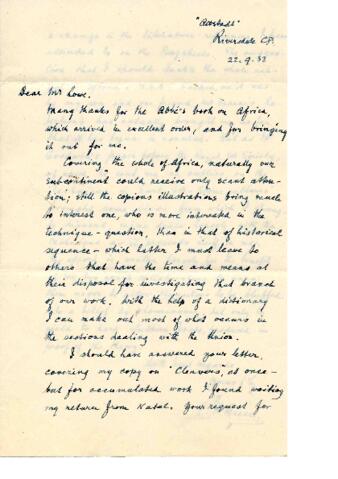 Riversdale C.P.
22.9.53
Dear Mr Lowe.
Many thanks for the Abbé's book on Africa,
which arrived in excellent order, and for bringing
it out for me.
Covering the whole of Africa, naturally our
"subcontinent" could receive only scant atten-
tion; still the copious illustrations bring much
to interest one, who is more interested in the
technique-question, than in that of historical
sequence – which latter I must leave to
others that have the time and means at
their disposal for investigating that branch
of our work. With the help of a dictionary
I can make out most of what occurs in
the sections dealing with the Union.
I should have answered your letter,
covering my copy on "Cleavers", at once –
but for accumulated work I found waiting
my return from Natal. Your request for